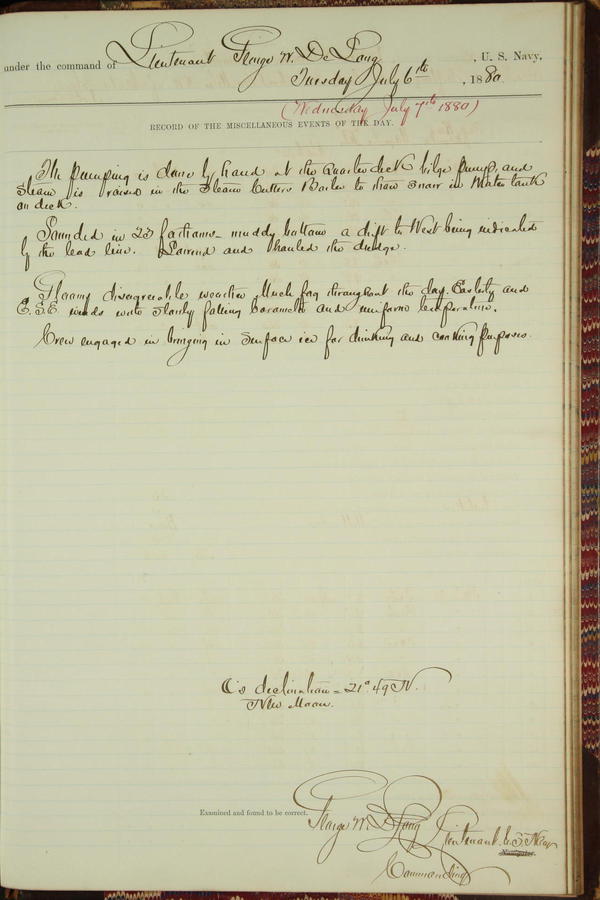 under the command of Lieutenant George W. De Long, U. S. Navy.
Tuesday July 6th, 1880
(Wednesday July 7th 1880)
RECORD OF THE MISCELLANEOUS EVENTS OF THE DAY.
The pumping is done by hand at the quarterdeck bilge pump, and
steam is raised in the Steam Cutters Boiler to thaw snow in Water tank
on deck.
Sounded in 23 fathoms - muddy bottom a drift to West being indicated
by the lead line. and hauled the dredge.
Gloomy disagreeable weather. Much fog throughout the day. Easterly and
E.S.E. winds with slowly falling barometer and uniform temperature.
Crew engaged in bringing in surface ice for drinking and cooking purposes.
☾'s declination = 21° 49' N.
New Moon.
Examined and found to be correct.
George W. De Long Lieutenant U.S. Navy
Navigator.
Commanding